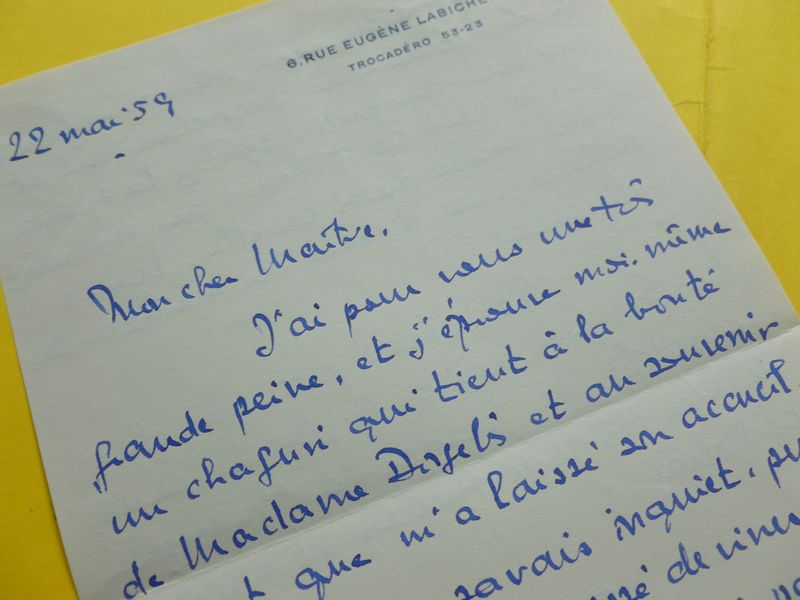 6. RUE EUGÈNE LABICHE
TROCADÉRO 53-23
22 mai 59
Mon cher Maître,
J'ai pour vous une très
grande peine, et j'éprouve moi-même
un chagrin qui tient à la bonté
de Madame Dorgelès et au souvenir
que m'a laissé son accueil
savais inquiet,
de